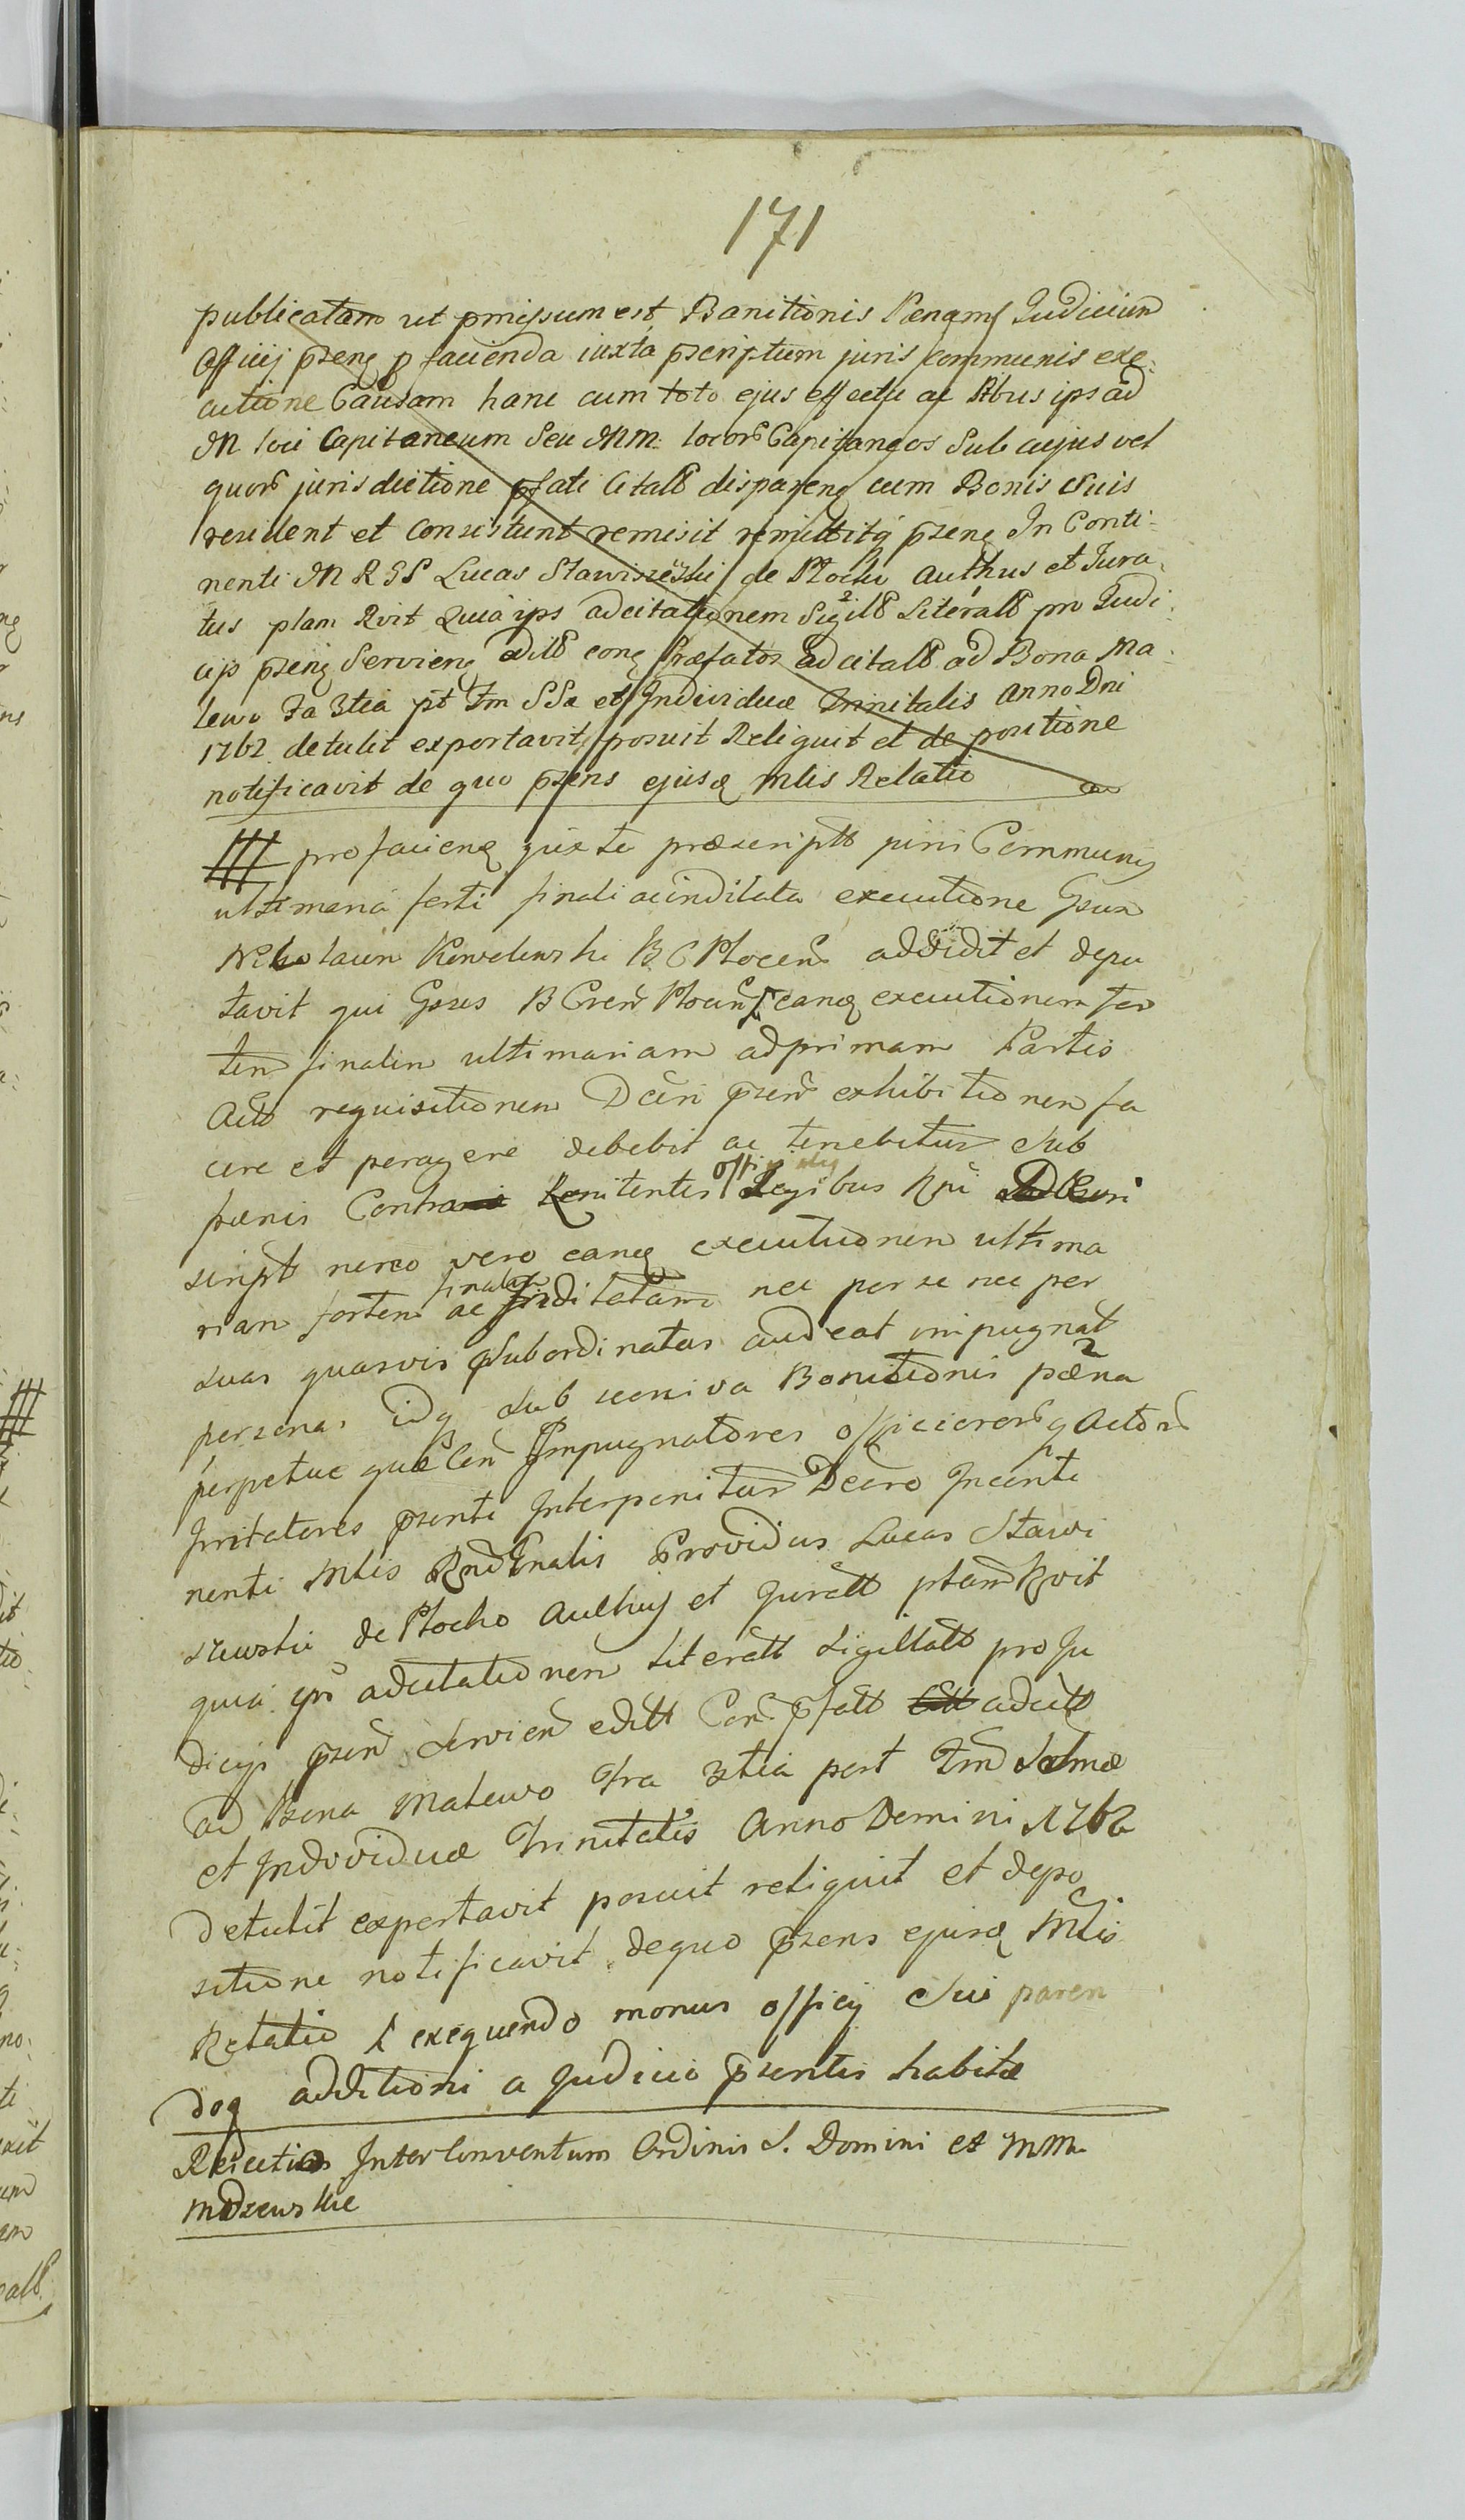 171
publicatam ut pmissum est Banitionis Paenamq Judicium
Officij pseng p facienda iuxta pscriptum juris communis exe-
cutione Causam hanc cum toto ejus effectu ac Rbus ips ad
M loci Capitaneum Seu MM. locor Capitaneos Sub cujus vel
quor jurisdictione pfati Citall dispareng cum Bonis Suis
resident et consistunt remisit remittitq pseng In Conti-
nenti M R G S Lucas Stawiszewski de Plocko Authus et Jura-
tus plam Rvit Quia ips adcitationem Sigill Literall pro Judi-
cijs pseng Servieng edill cong Praefatos ad citall ad Bona Ma-
lewo Fa 3tia pt Fm SSae et Individuae Trinitatis Anno Dni
1762 detulit exportavit posuit Reliquit et de positione
notificavit de quo psens ejusq Mlis Relatio
pro facieng juxta praescriptt juris Communis
ultimaria forti finali acindilata executione Gsum
Nicolaum B C Plocen addidit et depu
tavit qui Gsus B Cren Plocen eanq executionem for
tem finalem ultimariam ad primam Partis
Acto requisitionem Dcri psen exhibitionem fa
cere et peragere debebit ac tenebitur Sub
paenis Contra Renitentes Legibus Rni
script nemo vero eanq executionem ultima
riam fortem finalem ac Inditatam nec per se nec per
suas quasvis Subordinatas audeat impugnat
personas idq sub reciva Banitionis paena
perpetuae quae Cen Impugnatores officiororq Actor
Irritatores psenti Interponitur Dcero Incenti
nenti Mlis Rndnalis Providus Lucas Stawi
szewski de Plocko Authus et Juratt plam Rvit
quia ips adcitationem Literatt Sigillatt pro Ju
dicijs psen Servien editt Con pfatt adcitt
ad Bona Malewo Fra 3tia post Fm Sslmae
et Individuae Trinitatis Anno Domini 1762
detulit exportavit posuit reliquit et depo
sitione notificavit de quo psens ejusq Mlis
Relatio exequendo monus officij Sui paren
doq additioni a Judicio psentis habitae
Reiectio Inter Conventum Ordinis S. Domini et MM.